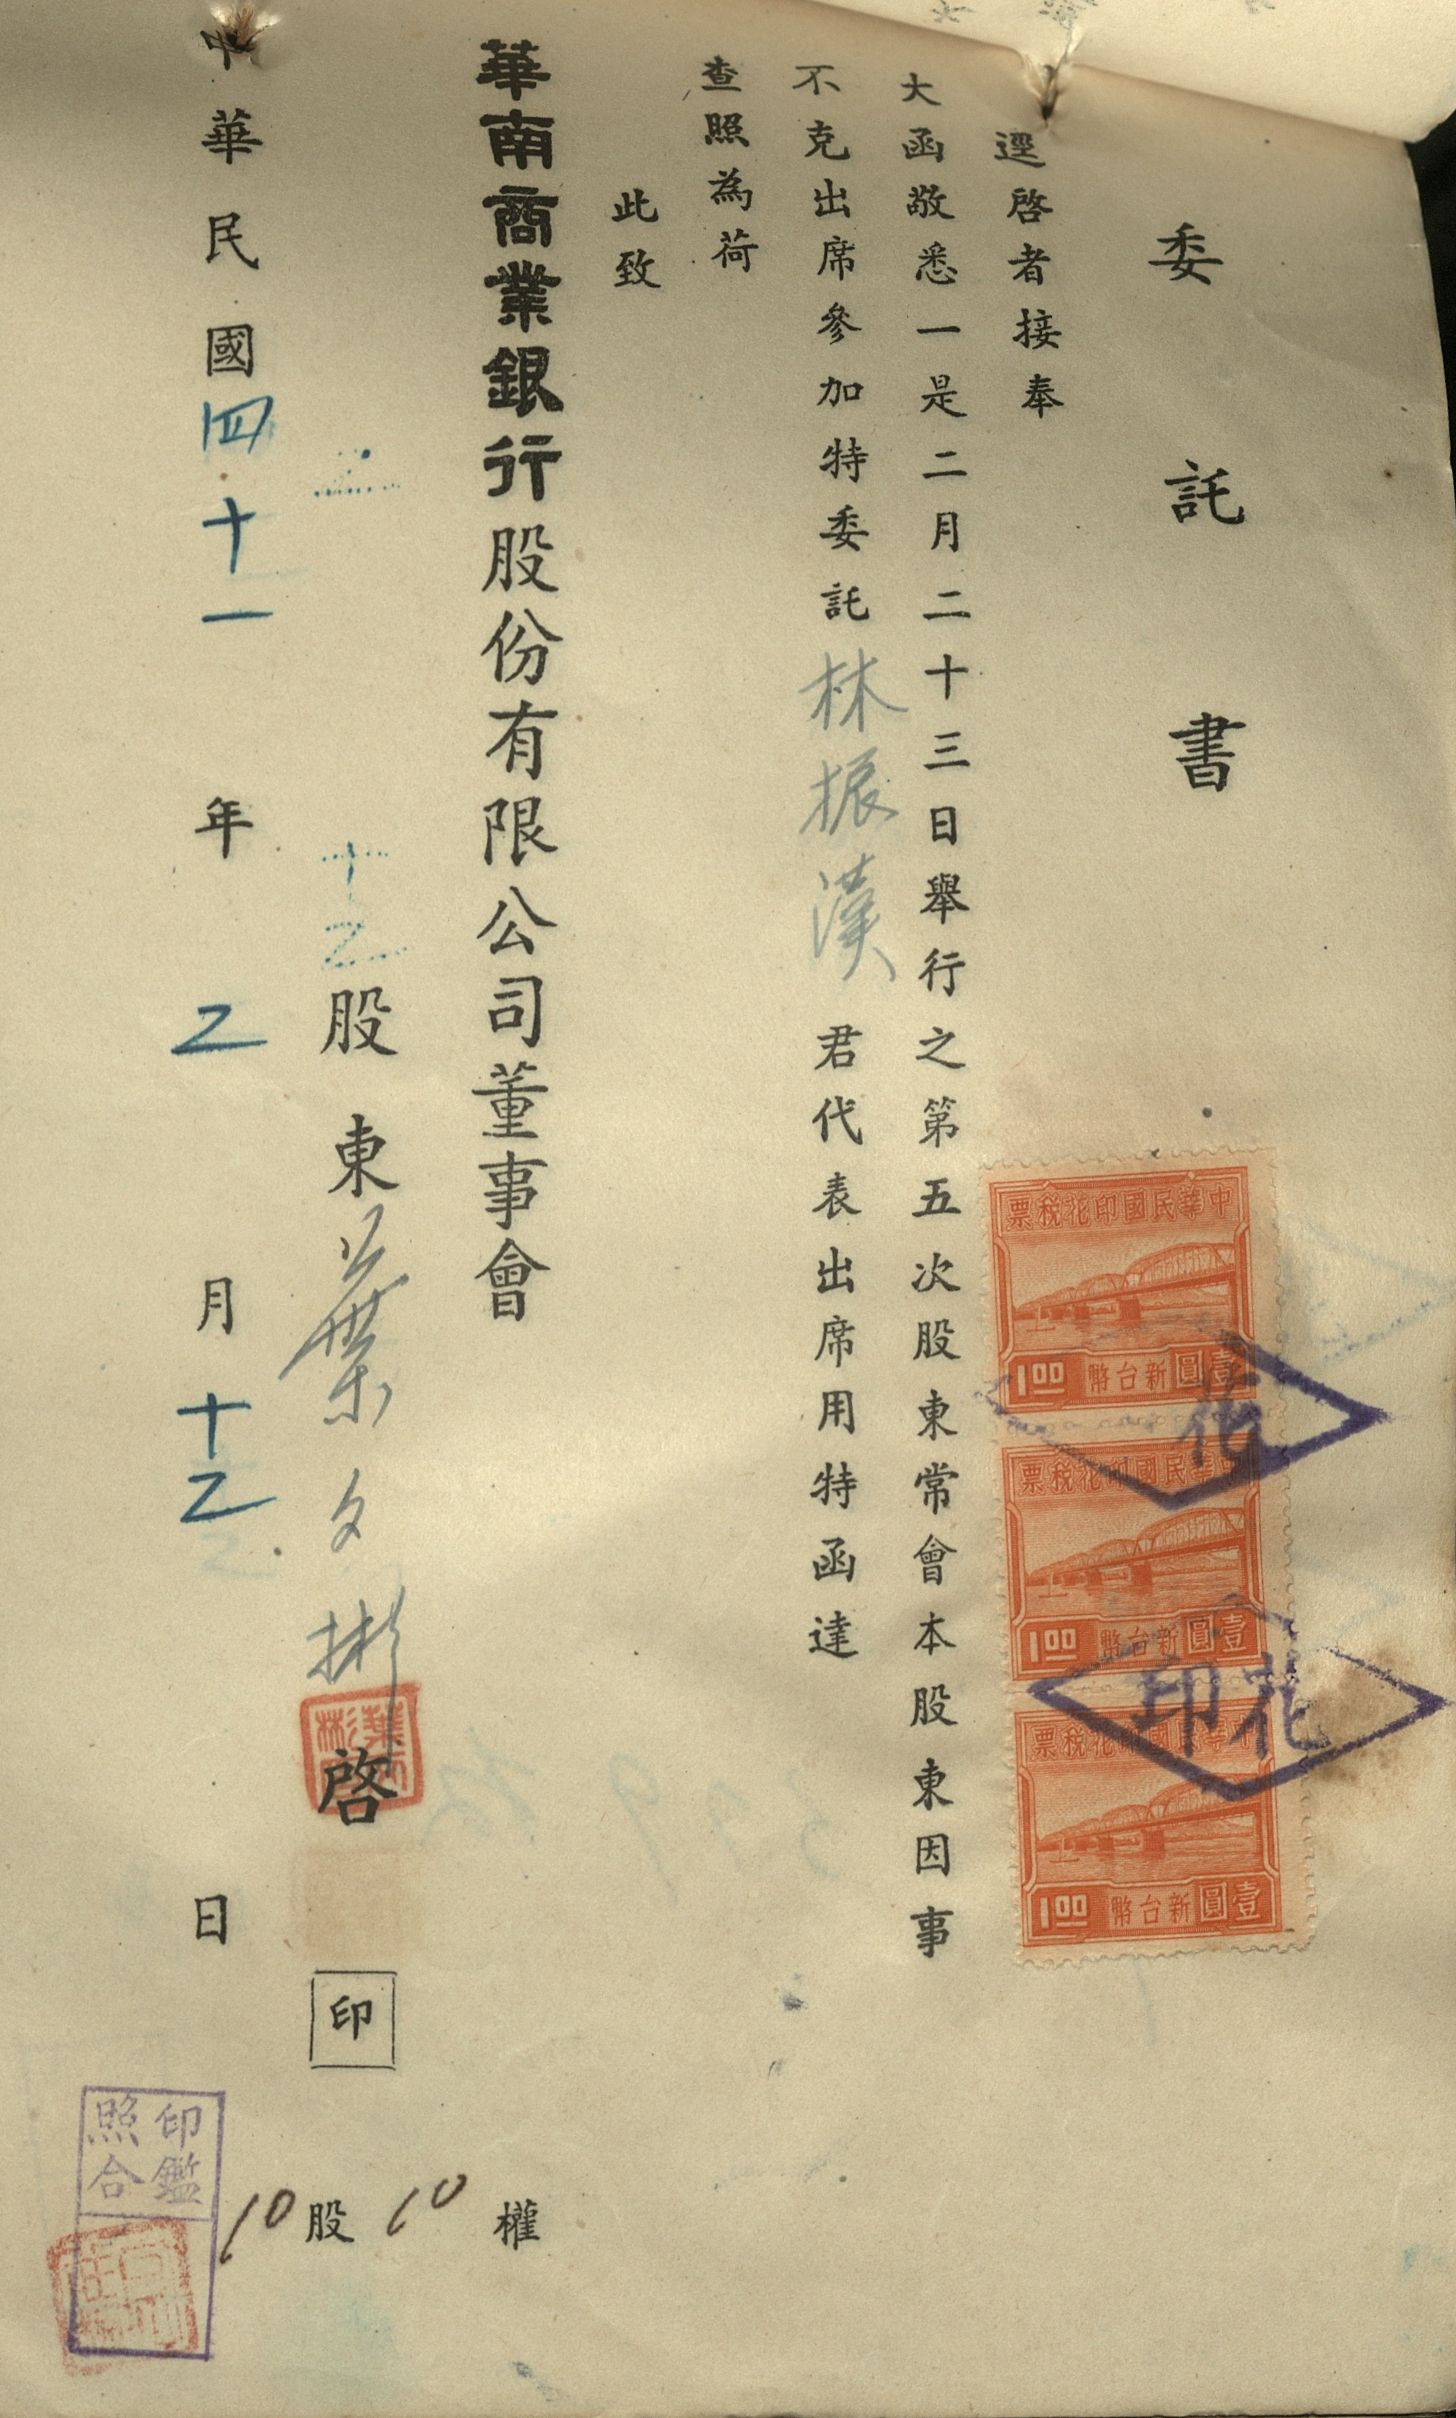 委託書
逕啓者接奉
大函敬悉一是二月二十三日舉行之第五次股東常會本股東因事
不克出席參加特委託林振漢君代表出席用特函達
查照為荷
此致
華南商業銀行股份有限公司董事會
股東葉文彬啓 印
中華民國四十一年乙月十乙日
10股10權
中華民國印花稅票
1.00 新台幣壹圓
中華民國印花稅票
1.00 新台幣壹圓
中華民國印花稅票
1.00 新台幣壹圓
花
印花
印鑑
照合